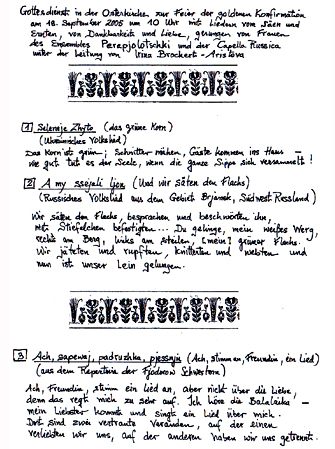 Gottesdienst in der Osterkirche zur Feier der goldenen Konfirmation
am 18. September 2005 um 10 Uhr mit Liedern von Säen und
Ernten, von Dankbarkeit und Liebe, gesungen von Frauen
des Ensembles Perepjolotschki und der Capella Russica
unter der Leitung von Irina Brockert-Aristova
1 Selenoje Zhyto (das grüne Korn)
(Ukrainisches Volkslied)
Das Korn ist grün; Schnitter mähen, Gäste kommen ins Haus –
wie gut tut es der Seele, wenn die ganze Sippe sich versammelt!
2 A my ssejali ljon (Und wir säten den Flachs)
(Russisches Volkslied aus dem Gebiet Brjansk, Südwest Russland)
Wir säten den Flachs, besprachen und beschwörten ihn,
mit Stiefelchen befestigten... Du gelinge, mein weißes Werg,
rechts am Berg, links am steilen, (mein) grüner Flachs.
Wir jäteten und rupften, knitterten und webten und
nun ist unser Lein gelungen.
3 Ach, sapewaj, padruzhka, pjessnju (Ach, stimm an, Freundin, ein Lied)
(aus dem Repertoire der Fjodorow Schwestern)
Ach, Freundin, stimm ein Lied an, aber nicht über die Liebe
denn das regt mich zu sehr auf. Ich höre die Balalaika –
mein Liebster kommt und singt ein Lied über mich.
Dort sind zwei vertraute Veranden, auf der einen
verliebten wir uns, auf der anderen haben wir uns getrennt.